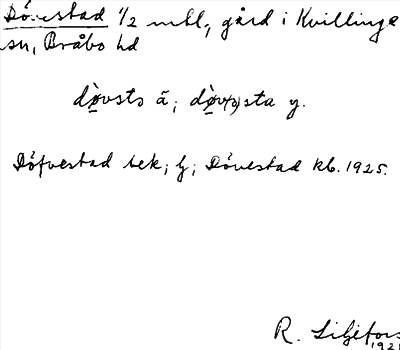 Dövestad 1/2 mtl, gård i Kvillinge
sn, Bråbo hd
dø̀vsta ä; dø̀v(ə)sta y.
Döfvestad bek; lj; Dövestad kb. 1925.
R. Liljefors
192